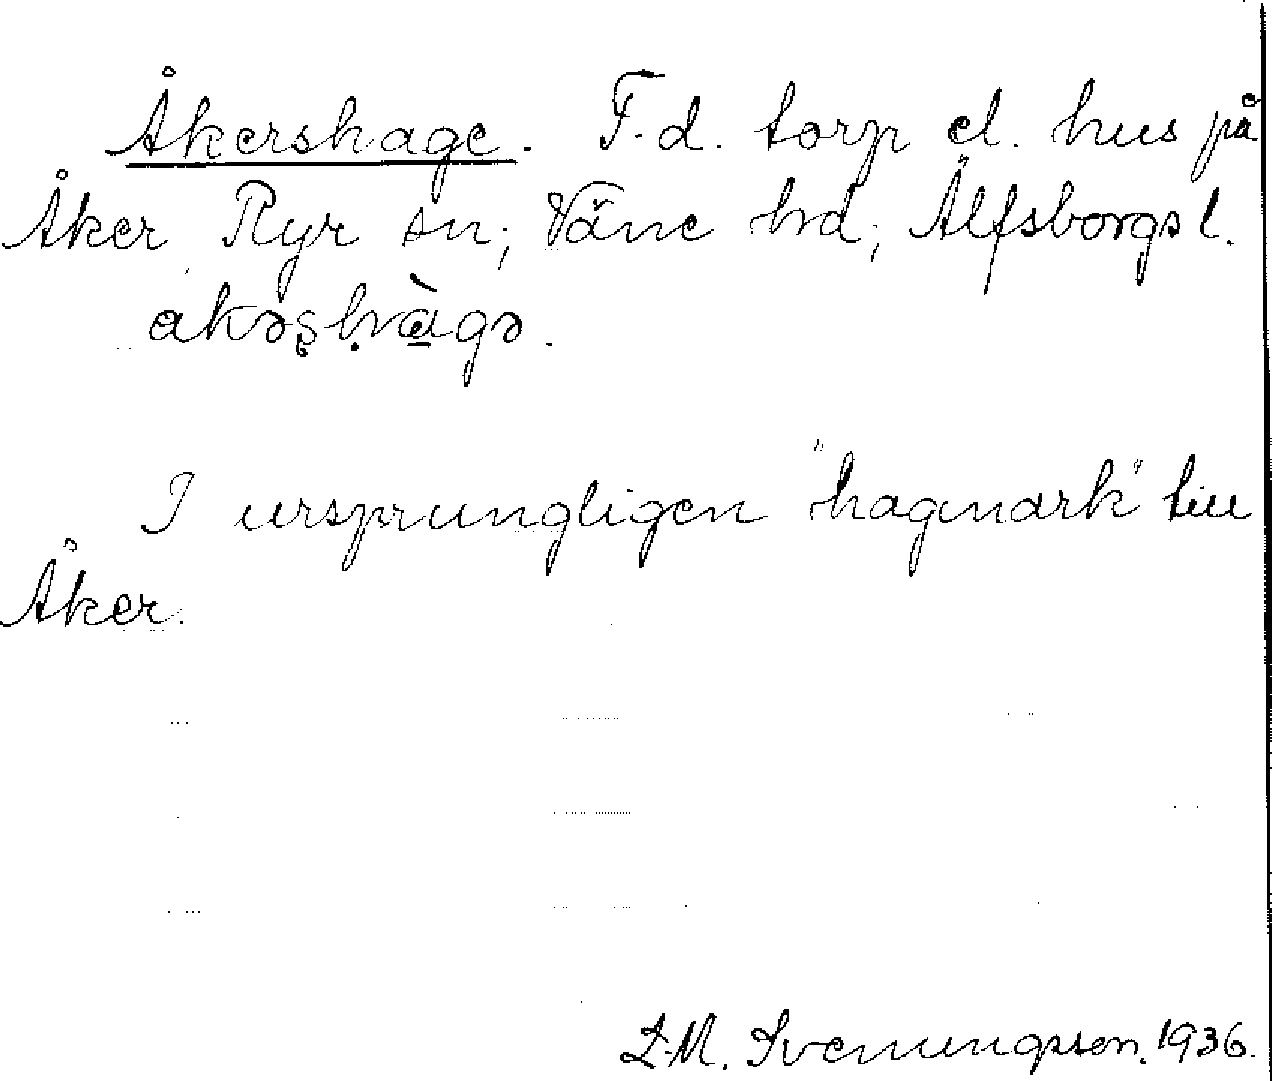 Åkershage. F.d. torp el. hus på
Åker Ryr sn; Väne hd; Älfsborgs l.
I ursprungligen "hagmark" till
Åker.
Svenungsson. 1936.